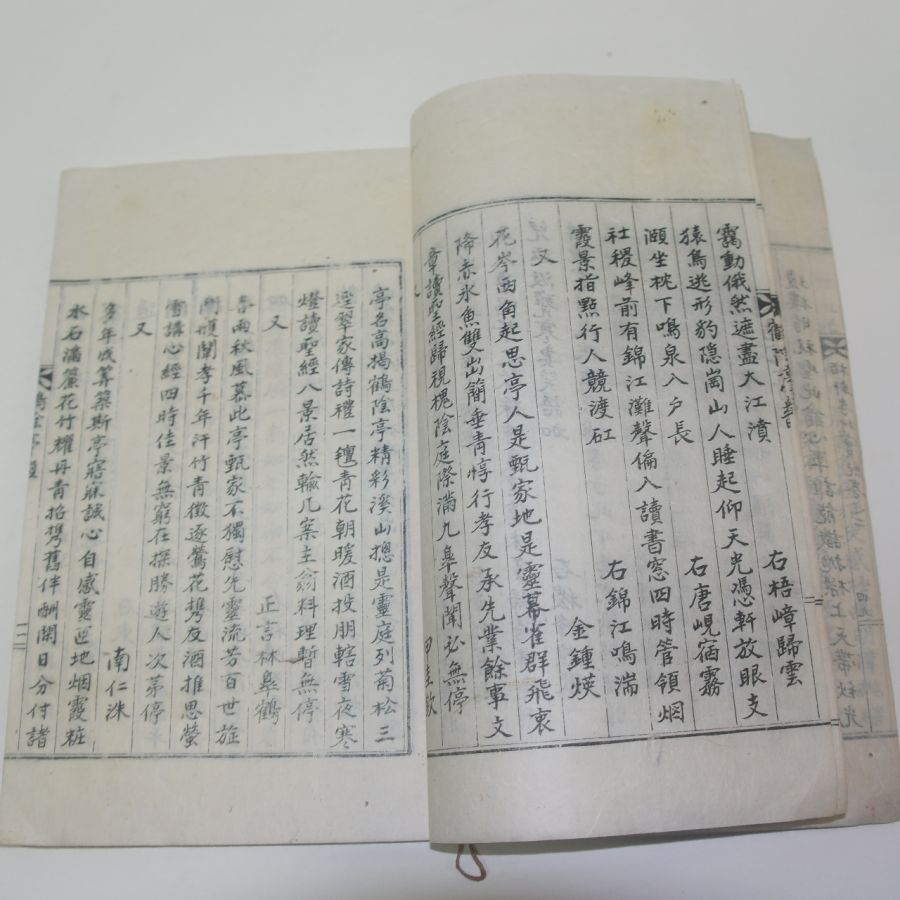 右梧嶂歸雲
靄動俄然遮盡大江濆
猿鳥逃形豹隱崗山人睡起仰天光憑軒放眼支
右唐峴宿霧
頤坐枕下鳴泉入戶長
社稷峰前有錦江灘聲偏入讀書窓四時管領烟
右錦江鳴湍
霞景指點行人競渡矼
金鍾煐
又
花岑西角起思亭人是甄家地是靈幕雀群飛衷
降赤氷魚雙出簡垂青惇行孝友承先業餘事文
章讀聖經歸視槐陰庭際滿九皐聲聞訟無停
亭名高揭鶴陰亭精彩溪山摠是靈庭列菊松三
逕翠家傳詩禮一氊青花朝暖酒投朋轄雪夜寒
燈讀聖經八景居然輸几案主翁料理暫無停
又
正言林皐鶴
春雨秋風慕此亭甄家不獨慰先靈流芳百世旌
閭雁闈孝千年汗竹青徵逐鶯花携友酒推思螢
雪講心經四時佳景無窮在探勝遊人次苐停
又
南仁洙
多年成筭築斯亭寤寐誠心自感靈逈地烟霞粧
水石滿簾花竹耀丹青招携舊伴酬閑日分付諸